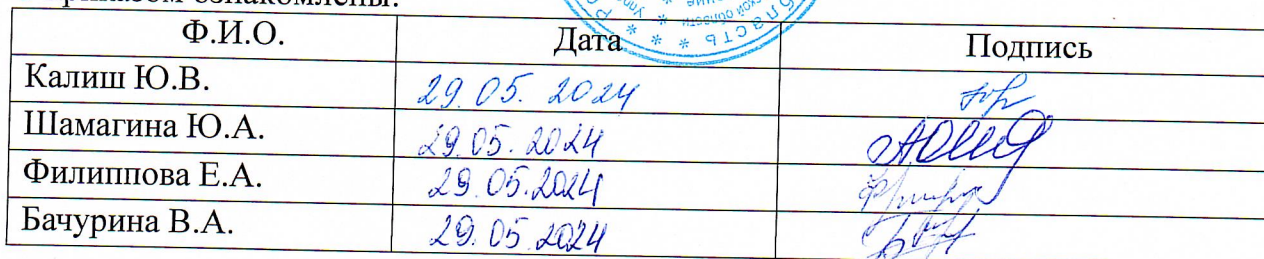 ознакомлены:
Ф.И.О. Дата Подпись
Калиш Ю.В. 29.05.2024
Шамагина Ю.А. 29.05.2024
Филиппова Е.А. 29.05.2024
Бачурина В.А. 29.05.2024